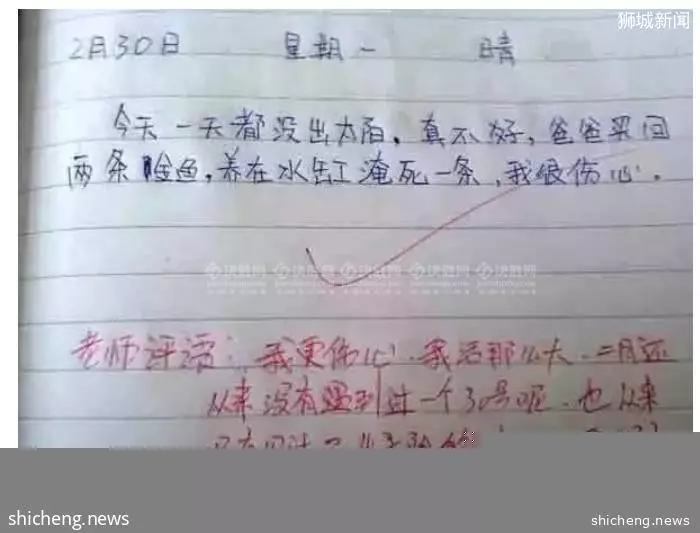 狮城新闻
2月30日 星期一 晴
今天一天都没出太阳，真不好，爸爸买回
两条金鱼，养在水缸淹死一条，我很伤心。
老师评语：我更伤心，我活那么大，二月还
从来没有遇到过一个30号呢，也从来
shicheng.news
shicheng.news